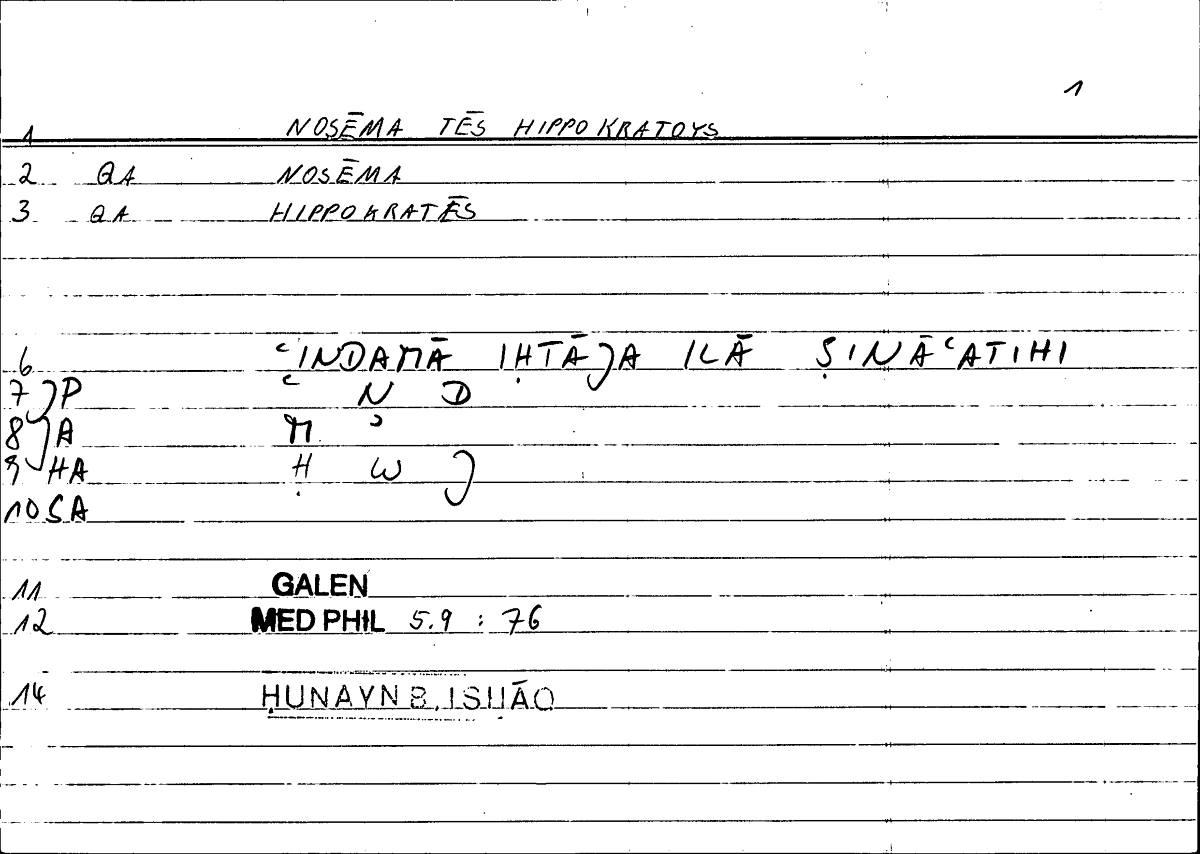 1
1 NOSĒMA TĒS HIPPOKRATOYS
2 QA NOSĒMA
3 QA HIPPOKRATĒS
6 ʿINDAMĀ IḤTĀJA ILĀ ṢINĀʿATIHI
7 P ʿ N D
8 A M ʾ
9 HA Ḥ W J
10 SA
11 GALEN
12 MED PHIL 5.9 : 76
14 ḤUNAYN B. ISḤĀQ